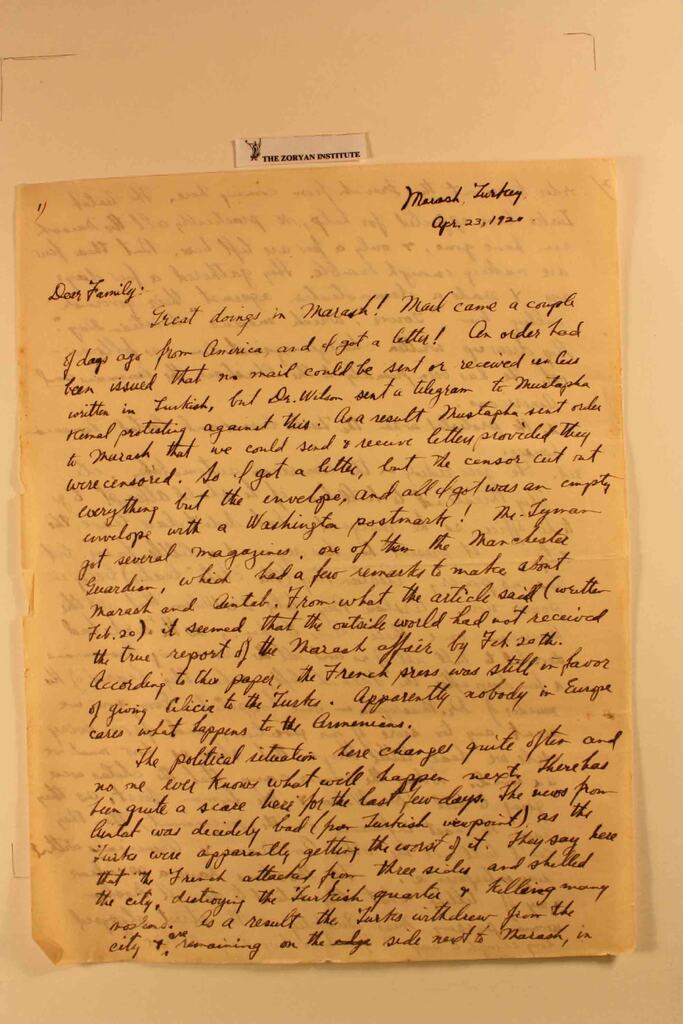 THE ZORYAN INSTITUTE
1)
Marash, Turkey
Apr. 23, 1920.
Dear Family:
Great doings in Marash! Mail came a couple
of days ago from America and I got a letter! An order had
been issued that no mail could be sent or received unless
written in Turkish, but Dr. Wilson sent a telegram to Mustapha
Kemal protesting against this. As a result Mustapha sent order
to Marash that we could send & receive letters provided they
were censored. So I got a letter, but the censor cut out
everything but the envelope, and all I got was an empty
envelope with a Washington postmark! Mr. Lyman
got several magazines, one of them the Manchester
Guardian, which had a few remarks to make about
Marash and Aintab. From what the article said (written
Feb. 20) it seemed that the outside world had not received
the true report of the Marash affair by Feb 20th.
According to this paper, the French press was still in favor
of giving Cilicia to the Turks. Apparently nobody in Europe
cares what happens to the Armenians.
The political situation here changes quite often and
no one ever knows what will happen next. There has
been quite a scare here for the last few days. The news from
Aintab was decidedly bad (from Turkish viewpoint), as the
Turks were apparently getting the worst of it. They say here
that the French attacked from three sides and shelled
the city, destroying the Turkish quarter & killing many
As a result the Turks withdrew from the
city & are remaining on the edge side next to Marash, in